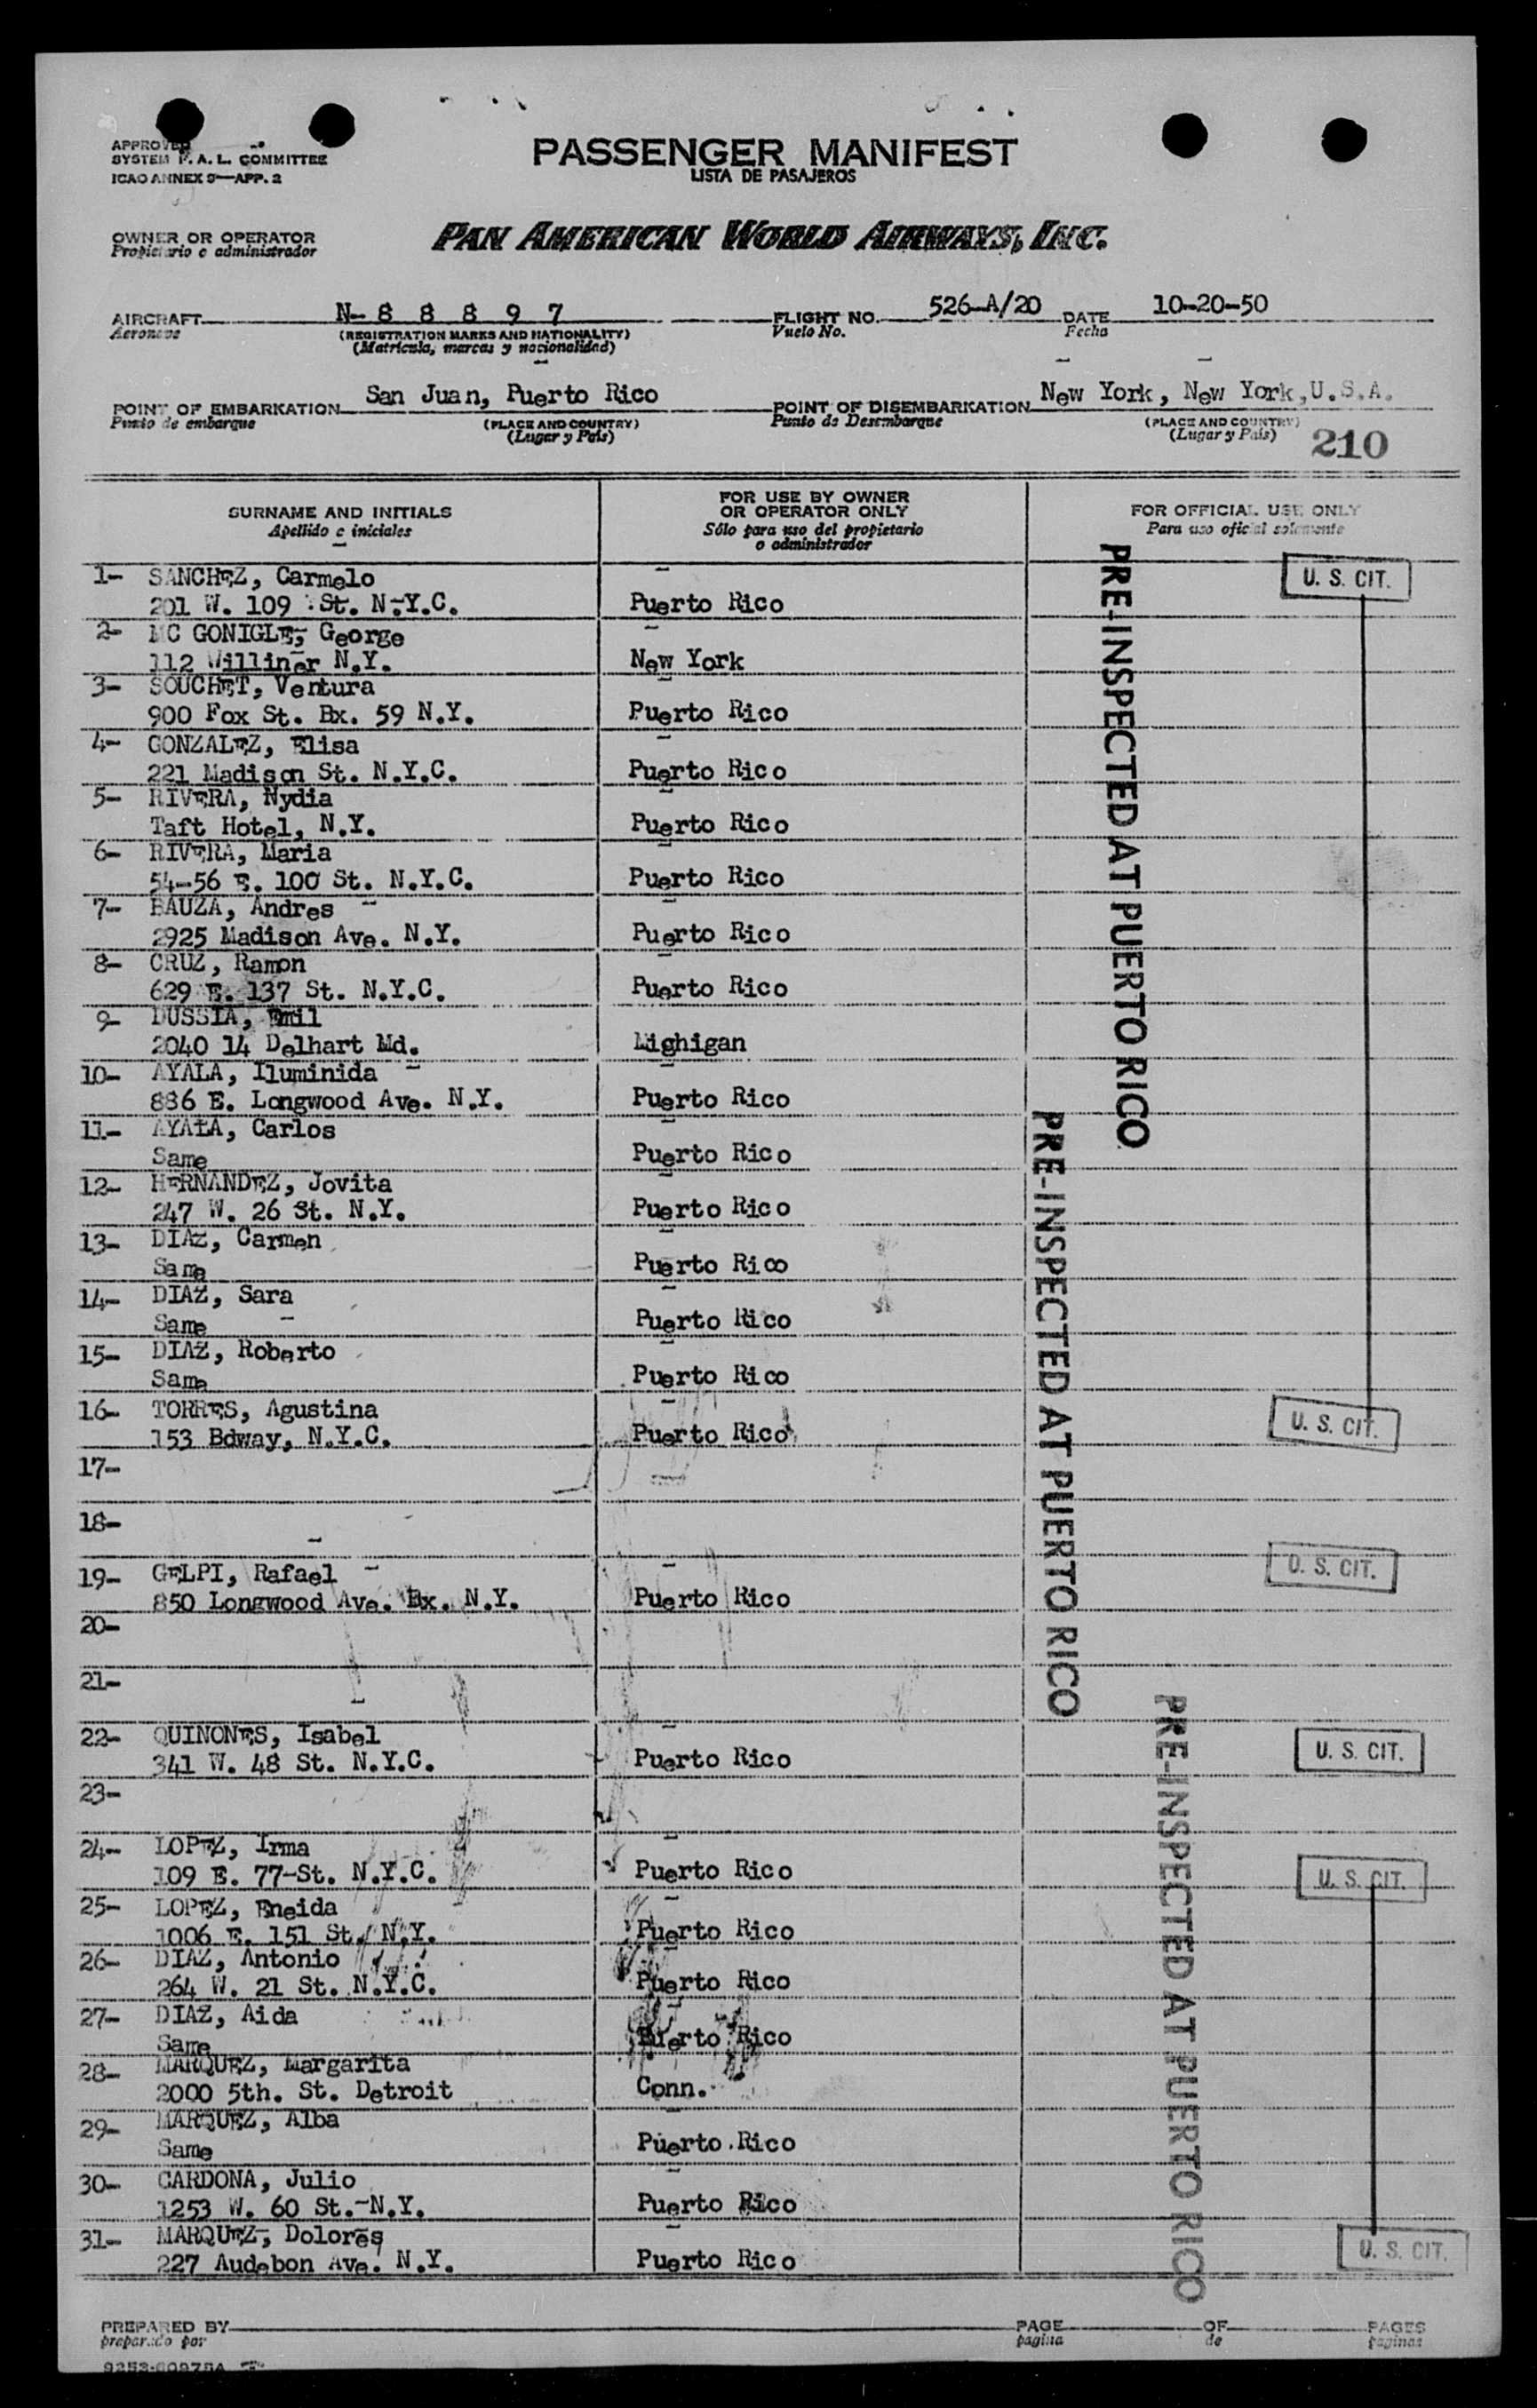 APPROVED
SYSTEM F. A. L. COMMITTEE
ICAO ANNEX 9—APP. 2
PASSENGER MANIFEST
LISTA DE PASAJEROS
OWNER OR OPERATOR
Propietario o administrador
PAN AMERICAN WORLD AIRWAYS, INC.
AIRCRAFT N-88897 FLIGHT NO. 526-A/20 DATE 10-20-50
Aeronave (REGISTRATION MARKS AND NATIONALITY) Vuelo No. Fecha
(Matricula, marcas y nacionalidad)
POINT OF EMBARKATION San Juan, Puerto Rico POINT OF DISEMBARKATION New York, New York, U.S.A.
Punto de embarque (PLACE AND COUNTRY) Punto de Desembarque (PLACE AND COUNTRY)
(Lugar y País) (Lugar y País) 210
SURNAME AND INITIALS FOR USE BY OWNER OR OPERATOR ONLY FOR OFFICIAL USE ONLY
Apellido e iniciales Sólo para uso del propietario o administrador Para uso oficial solamente
1- SANCHEZ, Carmelo U. S. CIT.
201 W. 109 St. N.Y.C. Puerto Rico
2- MC GONIGLE, George
112 Williner N.Y. New York
3- SOUCHET, Ventura
900 Fox St. Bx. 59 N.Y. Puerto Rico
4- GONZALEZ, Elisa
221 Madison St. N.Y.C. Puerto Rico
5- RIVERA, Nydia
Taft Hotel, N.Y. Puerto Rico
6- RIVERA, Maria
54-56 E. 100 St. N.Y.C. Puerto Rico
7- BAUZA, Andres
2925 Madison Ave. N.Y. Puerto Rico
8- CRUZ, Ramon
629 E. 137 St. N.Y.C. Puerto Rico
9- DUSSIA, Emil
2040 14 Delhart Md. Mighigan
10- AYALA, Iluminida
886 E. Longwood Ave. N.Y. Puerto Rico
PRE-INSPECTED AT PUERTO RICO
11- AYALA, Carlos
Same Puerto Rico
12- HERNANDEZ, Jovita
247 W. 26 St. N.Y. Puerto Rico
13- DIAZ, Carmen
Same Puerto Rico
14- DIAZ, Sara
Same Puerto Rico
15- DIAZ, Roberto
Same Puerto Rico
16- TORRES, Agustina U. S. CIT.
153 Bdway, N.Y.C. Puerto Rico
17-
18-
19- GELPI, Rafael U. S. CIT.
850 Longwood Ave. Bx. N.Y. Puerto Rico
20-
PRE-INSPECTED AT PUERTO RICO
21-
22- QUINONES, Isabel U. S. CIT.
341 W. 48 St. N.Y.C. Puerto Rico
23-
24- LOPEZ, Irma
109 E. 77-St. N.Y.C. Puerto Rico U. S. CIT.
25- LOPEZ, Eneida
1006 E. 151 St. N.Y. Puerto Rico
26- DIAZ, Antonio
264 W. 21 St. N.Y.C. Puerto Rico
27- DIAZ, Aida
Same Puerto Rico
28- MARQUEZ, Margarita
2000 5th. St. Detroit Conn.
29- MARQUEZ, Alba
Same Puerto Rico
30- CARDONA, Julio
1253 W. 60 St.-N.Y. Puerto Rico
31- MARQUEZ, Dolores U. S. CIT.
227 Audebon Ave. N.Y. Puerto Rico
PRE-INSPECTED AT PUERTO RICO
PREPARED BY PAGE OF PAGES
preparado por pagina de paginas